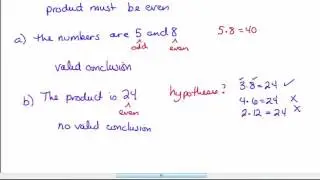 product must be even
a) the numbers are 5 and 8 5·8=40
odd even
valid conclusion
b) The product is 24 hypothesis? 3·8=24 ✓
even 4·6=24 x
no valid conclusion 2·12=24 x